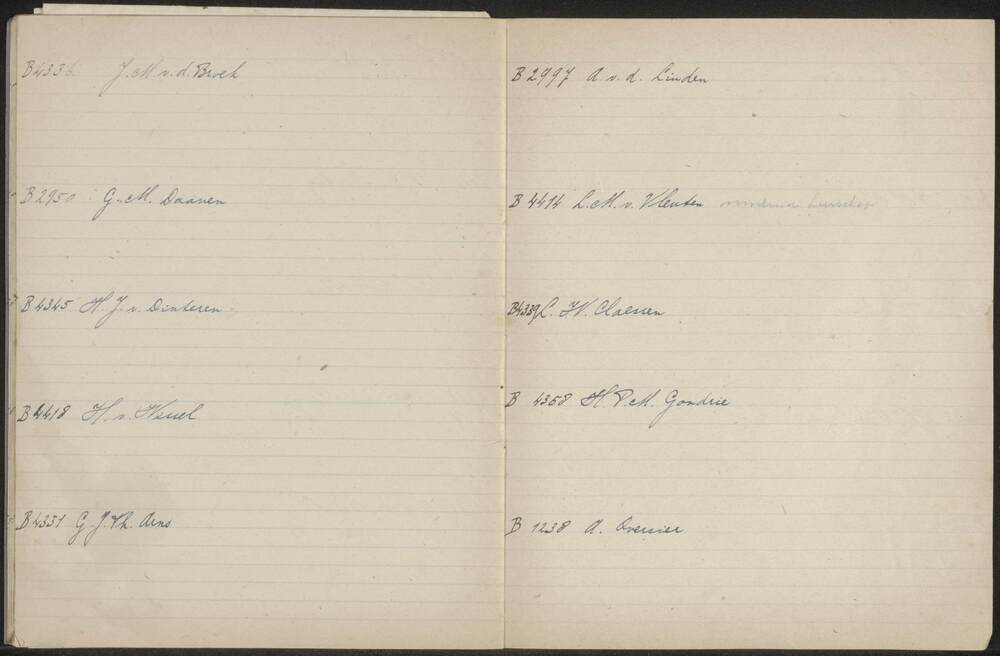 B 4336 J. M. v. d. Broek
B 2950 G. M. Daanen
B 4345 H. J. v. Dinteren
B 4418 H. v. Wessel
B 4351 G. J. Th. Arns
B 2997 A. v. d. Linden
B 4414 L. M. v. Vleuten
B 4339 L. W. Claessen
B 4358 H. P. M. Gondrie
B 1238 A. Overrier